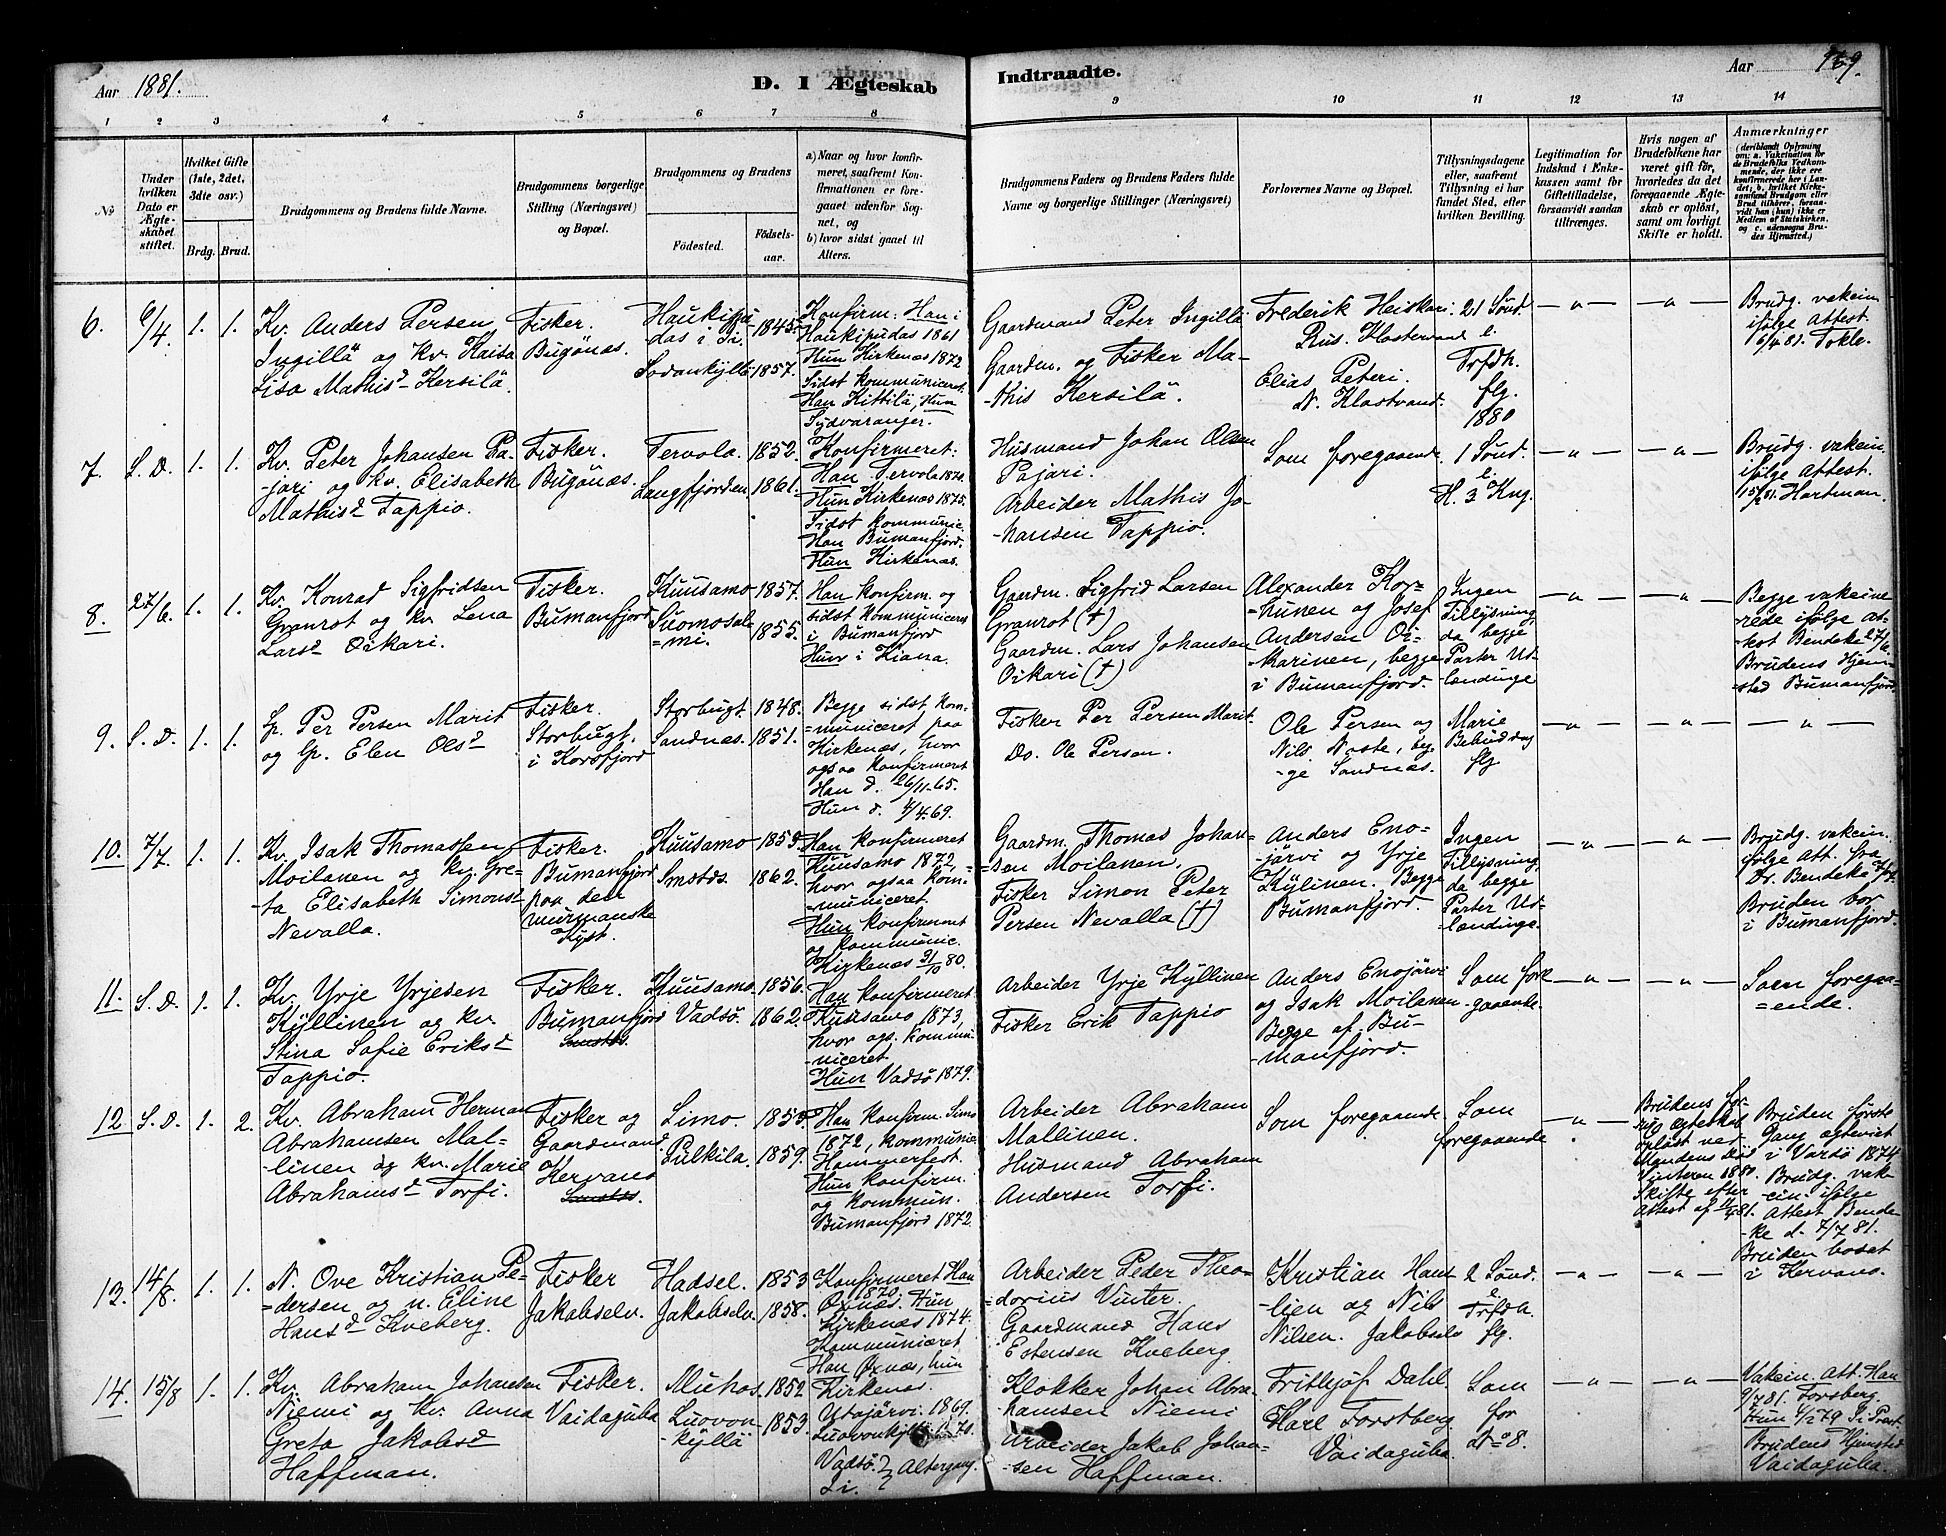 Aar 1881. D. I Ægteskab Indtraadte. Aar 169.
1 2 3 4 5 6 7 8 9 10 11 12 13 14
№
Under
hvilken
Dato er
Ægte-
skabet
stiftet.
Hvilket Gifte
(1ste, 2det,
3dte osv.)
Brdg. Brud.
Brudgommens og Brudens fulde Navne.
Brudgommens borgerlige
Stilling (Næringsvei)
og Bopæl.
Brudgommens og Brudens
Fødested.
Fødsels-
aar.
a) Naar og hvor konfir-
meret, saafremt Kon-
firmationen er fore-
gaaet udenfor Sog-
net, og
b) hvor sidst gaaet til
Alters.
Brudgommens Faders og Brudens Faders fulde
Navne og borgerlige Stillinger (Næringsvei)
Forlovernes Navne og Bopæl.
Tillysningsdagene
eller, saafremt
Tillysning ei har
fundet Sted, efter
hvilken Bevilling.
Legitimation for
Indskud i Enke-
kassen samt for
Giftetilladelse,
forsaavidt saadan
tiltrænges.
Hvis nogen af
Brudefolkene har
været gift før,
hvorledes da det
foregaaende Ægte-
skab er opløst,
samt om lovligt
Skifte er holdt.
Anmærkninger
(deriblandt Oplysning
om: a. Vakcination for
de Brudefolks Vedkom-
mende, der ikke ere
konfirmerede her i Lan-
det; b. hvilket Kirke-
samfund Brudgom eller
Brud tilhører, forsaa-
vidt han (hun) ikke er
Medlem af Statskirken,
og c. udensogns Bru-
des Hjemsted.)
6. 6/4 1. 1.
Kv. Anders Persen
Ingillä og kv. Kaisa
Lisa Mathisd Kersilä.
Fisker.
Bugönæs.
Haukipu-
das i Fi.
Sodankyllö
1845.
1857.
Konfirm: Han i
Haukipudas 1861
Hun Kirkenæs 1872
Sidst kommuniceret.
Han Kittilä, Hun
Sydvaranger.
Gaardmand Peter Ingillä
Gaardm. og Fisker Ma-
-this Kersilä.
Frederik Heiskari
Rus. Klostervand
Elias Peteri.
N. Klostvand.
21 Sönd.
e.
Trfdh.
flg.
1880
— " — — " —
Brudg. vakcin
ifølge attest.
6/4 81. Tokle.
7. S. D. 1. 1.
Kv. Peter Johansen Pa-
jari og kv. Elisabeth
Mathisd Tappio.
Fisker.
Bugönæs.
Tervola.
Langfjorden.
1852.
1861.
Konfirmeret:
Han Tervola 1870.
Hun Kirkenæs 1875.
Sidst kommunic.
Han Bumanfjord.
Hun Kirkenæs.
Husmand Johan Olsen
Pajari.
Arbeider Mathis Jo-
-hansen Tappio.
Som foregaaende.
1 Sönd.
e
H. 3 Kng.
— " — — " —
Brudg. vakcin.
ifølge attest.
Hartman.
8. 27/6. 1. 1.
Kv. Konrad Sigfridsen
Granrot og kv. Lena
Larsd Oikari.
Fisker.
Bumanfjord
Kuusamo
Suomosal-
=mi.
1857.
1855.
Han konfirm. og
sidst kommuniceret
i Bumanfjord
Hun i Kiana.
Gaardm. Sigfrid Larsen
Granrot (†)
Gaardm. Lars Johansen
Oikari (†)
Alexander Kor-
=hunen og Josef
Andersen Oi-
-karinen, begge
i Bumanfjord.
Ingen
Tillysning,
da begge
Parter Ud-
lændinge
— " — — " —
Begge vakcine-
-rede ifølge at-
-test Bendeke 27/6.
Brudens Hjem-
-sted Bumanfjord.
9. S. D. 1. 1.
Lp. Per Persen Marit
og Lp. Elen Olsd
Fisker.
Storbugt.
i Korsfjord
Storbugt.
Sandnæs.
1848.
1851.
Begge sidst kom-
=municeret paa
Kirkenæs, hvor
ogsaa konfirmeret
Han d. 26/11 65.
Hun d. 4/4 69.
Fisker Per Persen Marit.
Do. Ole Persen.
Ole Persen og
Nils Noste, beg-
-ge Sandnæs.
Marie
Bebud.dag
flg
— " — — " — — " —
10. 7/7. 1. 1.
Kv. Isak Thomassen
Moilanen og kv. Gre-
-ta Elisabeth Simonsd
Nevalla.
Fisker.
Bumanfjord
paa den
murmanske
Kyst.
Kuusamo
1853.
1862.
Han konfirmeret
Kuusamo 1872,
hvor ogsaa kom-
=municeret.
Hun konfirmeret
og kommunic.
Kirkenæs 31/10 80.
Gaardm. Thomas Johan-
=sen Moilanen.
Fisker Simon Peter
Persen Nevalla (†)
Anders Eno-
-järvi og Yrje
Kylinen. Begge
Bumanfjord.
Ingen
Tillysning,
da begge
Parter Ud-
lændinge.
— " — — " —
Brudg. vakcin.
ifølge att. fra
Dr. Bendeke 7/7.
Bruden bor
i Bumanfjord.
11. S. D. 1. 1.
Kv. Yrje Yrjesen
Kyllinen og kv.
Stina Sofie Eriksd
Tappio.
Fisker.
Bumanfjord
Kuusamo.
Vadsö.
1856.
1862.
Han konfirmeret
Kuusamo 1873,
hvor ogs. kommu-
-niceret
Hun Vadsö 1879.
Arbeider Yrje Kyllinen
Fisker Erik Tappio
Anders Enojärvi
og Isak Moilanen
Begge af Bu-
-manfjord.
Som fore
-gaaende.
— " — — " —
Som foregaa-
=ende.
12. S. D. 1. 2.
Kv. Abraham Herman
Abrahamsen Mal-
-linen og kv. Marie
Abrahamsd Torfi.
Fisker og
Gaardmand
Kervano
Simo.
Pulkila.
1853.
1859.
Han konfirm. Simo
1872, kommunic.
Hammerfest.
Hun konfirm.
og kommun.
Bumanfjord 1872.
Arbeider Abraham
Mallinen.
Husmand Abraham
Andersen Torfi.
Som foregaaende.
Som
foregaaende
— " —
Brudens for-
rige ægteskab
opløst ved
Mandens Död
Vinteren 1880.
Skifte efter
Attest af
Bruden förste
Gang ægteviet
i Vardö 1874
Brudg. vak-
cin. ifølge
Attest Bende-
ke d. 7/7 81.
Bruden boset
i Kervano.
13. 14/8. 1. 1.
N. Ove Kristian Pe-
=dersen og n. Eline
Hansd Kveberg.
Fisker
Jakobselv.
Hadsel.
Jakobselv.
1853
1858.
Konfirmeret Han
1870.
Öxnæs. Hun
Kirkenæs 1874.
Kommuniceret
Han Öxnæs, hun
Kirkenæs.
Arbeider Peder Theo-
=dorius Vinter.
Gaardmand Hans
Estensen Kveberg.
Kristian Hans
-lien og Nils
Nilsen. Jakobselv
2 Sönd.
e
Trfdh.
flg.
— " — — " —
14. 15/8 1. 1.
Kv. Abraham Johansen
Niemi og kv. Anna
Greta Jakobsd
Haffman.
Fisker.
Vaidaguba
Muhos.
Luovon-
kyllä
1852
1853.
Utajärvi. 1869.
Vadsö. Altergang.
Klokker Johan Abra-
hamsen Niemi
Arbeider Jakob Johan-
-sen Haffman.
Frithjof Dahl.
Karl Forstberg
Vaidaguba.
Som
for
No 8.
— " — — " —
Vakcin. Att. Han
9/7 81. Forsberg.
Brudens Hjemsted
Vaidaguba.